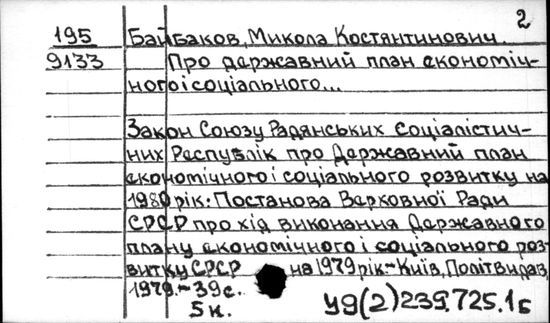 2
195 Байбаков, Микола Костянтинович.
9133 Про державний план економіч-
ного і соціального...
Закон Союзу Радянських Соціалістич-
них Республік про Державний план
економічного і соціального розвитку на
1980 рік: Постанова Верховної Ради
СРСР про хід виконання Державного
плану економічного і соціального роз-
витку СРСР на 1979 рік.-Київ, Політвидав,
1979.-39с.
5к. У9(2)239.725.1б